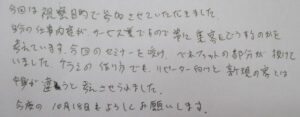 今回は視察目的で参加させていただきました。
自分の仕事内容がサービス業ですので常に集客どうするのかを
考えています。今回のセミナーを受け、ベネフィットの部分が抜けて
いました。チラシの作り方でも、リピーター向けと新規の客では
内容が違うと考えさせられました。
今度の10月18日もよろしくお願いします。